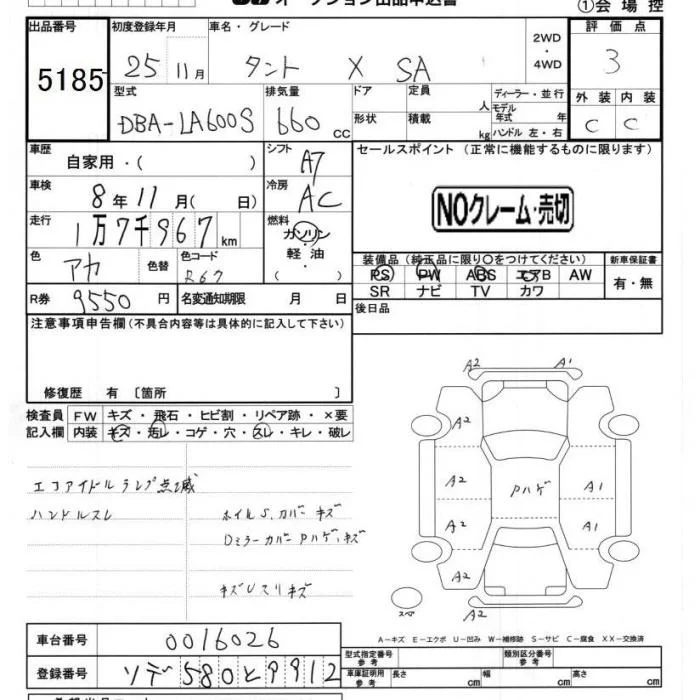 オークション出品申込書
①会場控
出品番号
5185
初度登録年月
25 11月
車名・グレード
タント X SA
2WD
・
4WD
評価点
3
型式
DBA-LA600S
排気量
660 cc
ドア
形状
定員
人
積載
kg
ディーラー・並行
モデル
年式 年
ハンドル 左・右
外装 内装
C C
車歴
自家用・( )
シフト
A7
セールスポイント (正常に機能するものに限ります)
車検
8年11月( 日)
冷房
AC
NOクレーム・売切
走行
1万7千967km
燃料
ガソリン
・
軽油
( )
色
アカ
色替
色コード
R67
装備品 (純正品に限り〇をつけてください)
新車保証書
PS PW ABS エアB AW
有・無
SR ナビ TV カワ
R券
9550円
名変通知期限 月 日
後日品
注意事項申告欄 (不具合内容等は具体的に記入して下さい)
修復歴 有 〔箇所 〕
検査員
記入欄
FW キズ・飛石・ヒビ割・リペア跡・×要
内装 キズ・汚レ・コゲ・穴・スレ・キレ・破レ
エコアイドルランプ点滅
ハンドルスレ
ホイルS,カバーキズ
DミラーカバーPハゲ,キズ
キズUスリキズ
A2 A1
A2
A2 Pハゲ A1
A2 A1
A2
A2
スペ
A-キズ E-エクボ U-凹み W-補修跡 S-サビ C-腐食 XX-交換済
車台番号
0016026
型式指定番号
参考
類別区分番号
参考
登録番号
ソデ580と9912
車庫証明用
参考
長さ cm 幅 cm 高さ cm